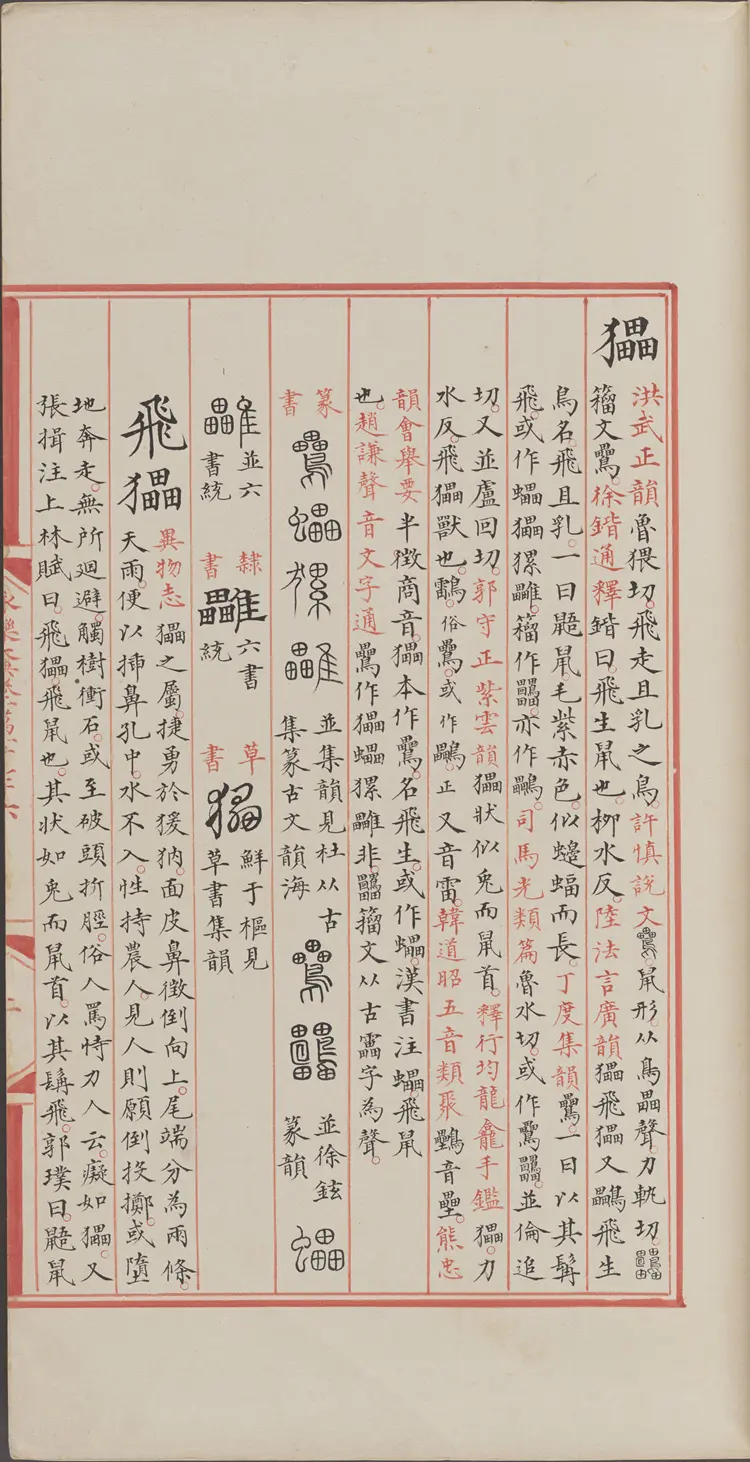 㹎
洪武正韻魯猥切。飛走且乳之鳥。許愼說文鸓。鼠形。从鳥畾聲。力軌切。
籀文鸓。徐鍇通釋鍇曰。飛生鼠也。柳水反。陸法言廣韻㹎飛㹎又鸓飛生
鳥名。飛且乳。一曰鼯鼠。毛紫赤色。似蝙蝠而長。丁度集韻鸓。一曰以其髯
飛。或作
籀作
亦作
司馬光類篇魯水切。或作鸓
並倫追
切。又並盧回切。郭守正紫雲韻㹎狀似兔而鼠首。釋行均龍龕手鑑㹎。力
水反。飛㹎獸也。
俗鸓。或作鸓。正又音雷。韓道昭五音類聚
音壘。熊忠
韻會舉要半徵商音。㹎本作鸓。名飛生。或作
漢書注
飛鼠
也。趙謙聲音文字通鸓作㹎
非。
籀文从古畾字為聲。
篆
書
並集韻見杜从古
集篆古文韻海
並徐鉉
篆韻
並六
書統
隸
書
六書
統
草
書
鮮于樞見
草書集韻
飛㹎
異物志㹎之屬。捷勇於猨狖。面皮鼻微倒向上。尾端分為兩條。
天雨。便以揷鼻孔中。水不入。性持農人。見人則願倒投擲。或墮
地奔走。無所迴避。觸樹衝石。或至破頭折脛。俗人罵恃力人云。癡如㹎。又
張揖注上林賦曰。飛㹎。飛鼠也。其狀如兔而鼠首。以其髯飛。郭璞曰。鼯鼠